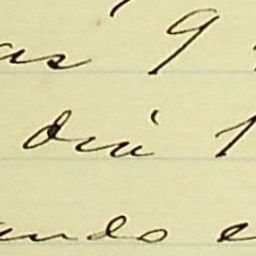 as 9
dia 1
ando e